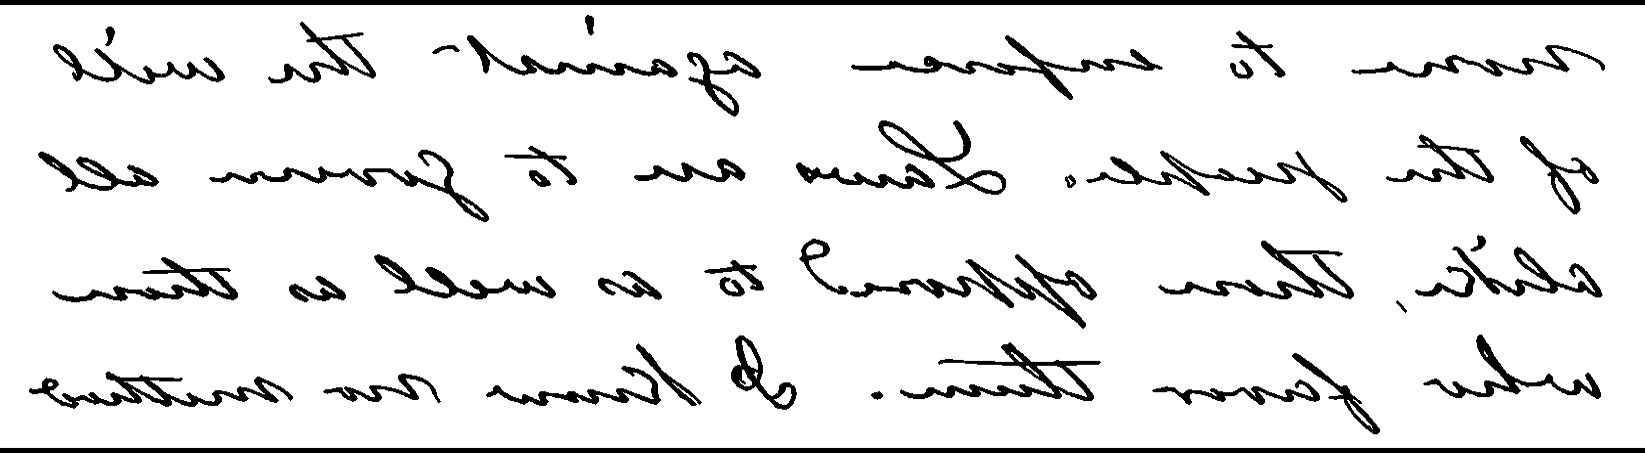 none to enforce against the will
of the people. Laws are to govern all
alike, those opposed to as well as those
who favor them. I know no method